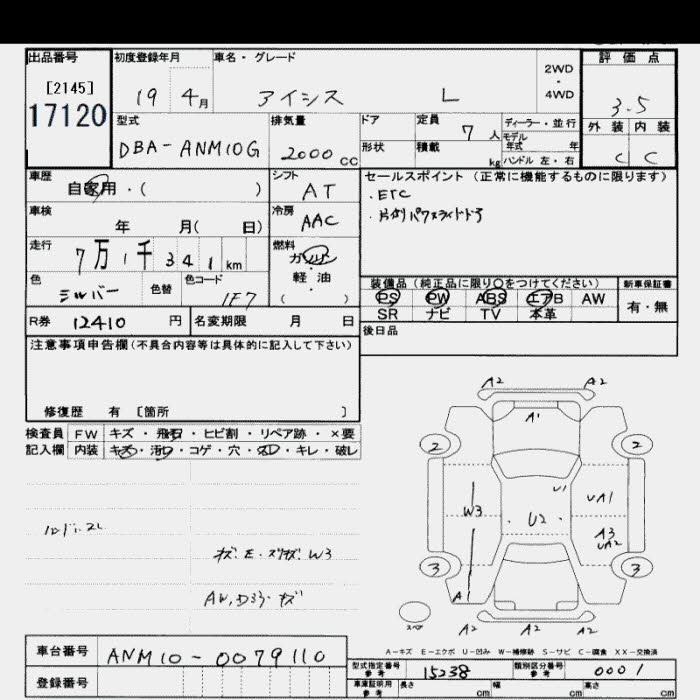 出品番号
[2145]
17120
初度登録年月
19 4月
車名・グレード
アイシス L
2WD
・
4WD
評価点
3.5
外装 内装
C C
型式
DBA-ANM10G
排気量
2000 cc
ドア
形状
定員
7人
積載
kg
ディーラー・並行
モデル
年式 年
ハンドル 左・右
車歴
自家用・( )
シフト
AT
車検
年 月( 日)
冷房
AAC
走行
7万1千341km
燃料
ガソリン
・
軽油
( )
色
シルバー
色替
色コード
1F7
R券 12410 円
名変期限 月 日
セールスポイント(正常に機能するものに限ります)
・ETC
・片側パワスライドドア
装備品(純正品に限り○をつけてください)
PS PW ABS エアB AW
SR ナビ TV 本革
新車保証書
有・無
後日品
注意事項申告欄(不具合内容等は具体的に記入して下さい)
修復歴 有 [箇所 ]
検査員
記入欄
FW キズ・飛石・ヒビ割・リペア跡・×要
内装 キズ・汚れ・コゲ・穴・スレ・キレ・破レ
ハンドル・スレ
キズ・E・スリキズ W3
AW,Dミラーキズ
A2 A2
A1
2 2
U1
UA1
W3
U2
A3
UA2
3 3
A1
スペア
A2 A2 A2
A-キズ E-エクボ U-凹み W-補修跡 S-サビ C-腐食 XX-交換済
車台番号
ANM10-0079110
登録番号
型式指定番号
参考
15238
類別区分番号
参考
0001
車庫証明用
参考
長さ cm
幅 cm
高さ cm